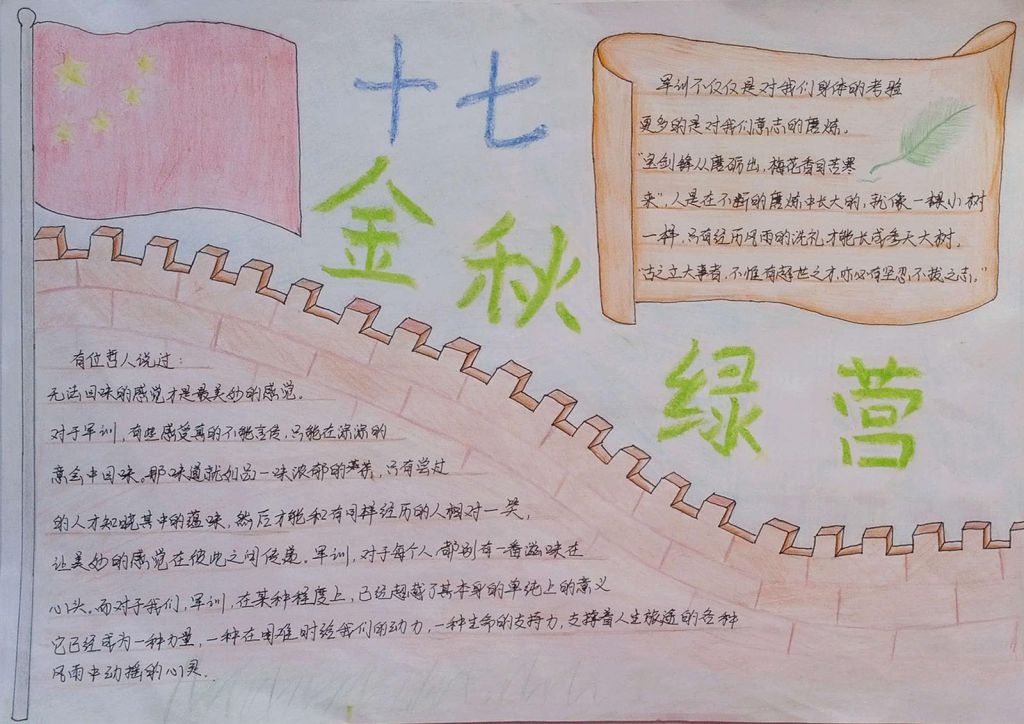 十七
金秋
绿营
军训不仅仅是对我们身体的考验
更多的是对我们意志的磨炼。
“宝剑锋从磨砺出,梅花香自苦寒
来”,人是在不断的磨炼中长大的,就像一棵小树
一样,只有经历风雨的洗礼才能长成参天大树。
“古之立大事者,不惟有超世之才,亦必有坚忍不拔之志。”
有位哲人说过:
无法回味的感觉才是最美妙的感觉。
对于军训,有些感受真的不能言传,只能在深深的
意会中回味。那味道就如品一味浓郁的苦茶,只有尝过
的人才知晓其中的蕴味,然后才能和有同样经历的人相对一笑,
让美妙的感觉在彼此之间传递。军训,对于每个人都别有一番滋味在
心头。而对于我们,军训,在某种程度上,已经超越了其本身的单纯上的意义
它已经成为一种力量,一种在困难时给我们的动力,一种生命的支持力,支撑着人生旅途的各种
风雨中动摇的心灵.